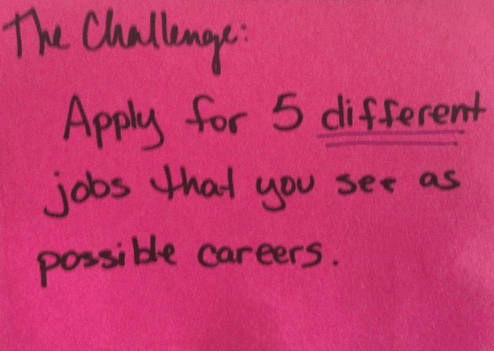 The Challenge:
Apply for 5 different
jobs that you see as
possible careers.